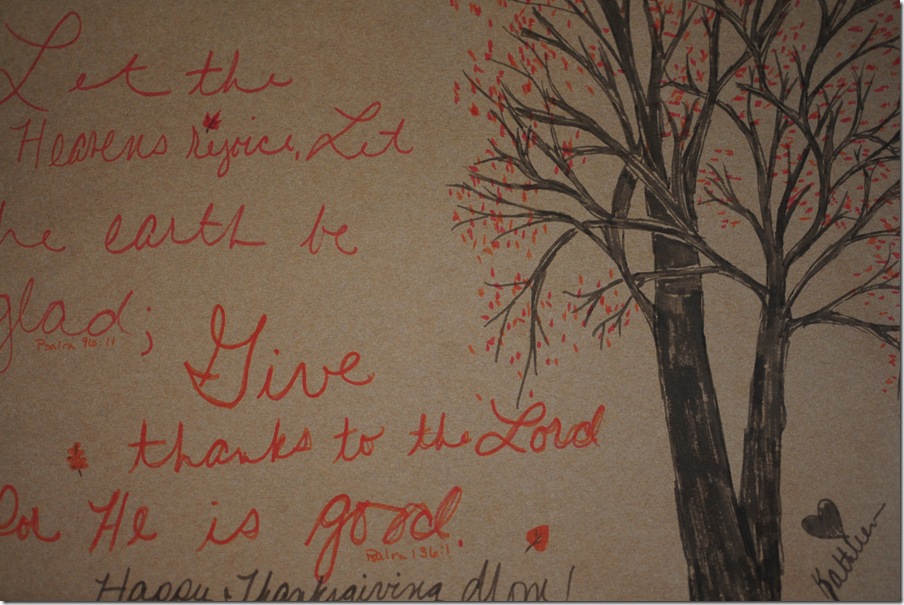 Let the
Heavens rejoice, Let
he earth be
glad; Psalm 96:11
Give
thanks to the Lord
for He is good.
Psalm 136:1
Happy Thanksgiving Mom!
Kathleen